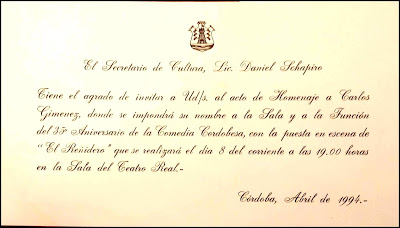 El Secretario de Cultura, Lic. Daniel Schapiro
Tiene el agrado de invitar a Ud/s. al acto de Homenaje a Carlos
Gimenez, donde se impondrá su nombre a la Sala y a la Función
del 35º Aniversario de la Comedia Cordobesa, con la puesta en escena de
"El Reñidero" que se realizará el día 8 del corriente a las 19.00 horas
en la Sala del Teatro Real.-
Córdoba, Abril de 1994.-